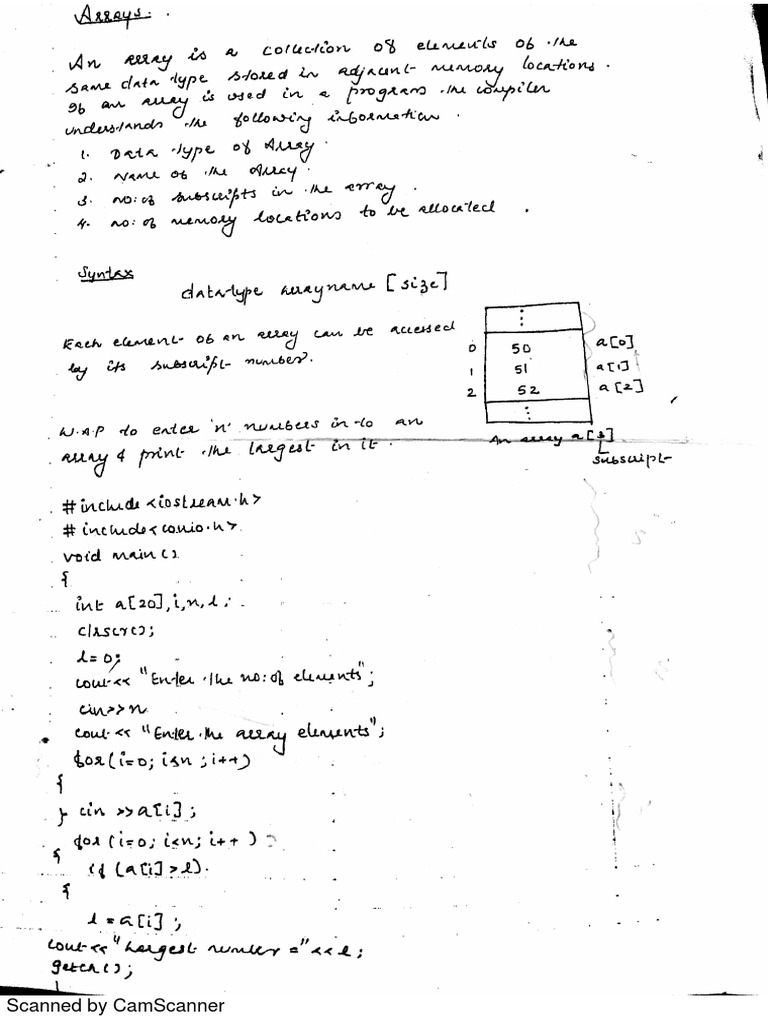 Arrays:.
An array is a collection of elements of the
same data type stored in adjacent memory locations.
If an array is used in a program the compiler
understands the following information.
1. Data type of Array.
2. Name of the Array.
3. no: of subscripts in the array.
4. no: of memory locations to be allocated.
Syntax
datatype arrayname [size]
Each element of an array can be accessed
by its subscript number.
0 50 a[0]
1 51 a[1]
2 52 a[2]
An array a[3]
subscript
W.A.P to enter 'n' numbers in to an
array & print the largest in it.
#include<iostream.h>
#include<conio.h>
void main()
{
int a[20],i,n,l;
clrscr();
l=0;
cout<< "Enter the no: of elements";
cin>>n
cout<< "Enter the array elements";
for(i=0; i<n ;i++)
{
} cin >>a[i];
for(i=0; i<n; i++)
{
if (a[i]>l).
{
l=a[i];
cout<< "Largest number ="<<l;
getch();
}
Scanned by CamScanner